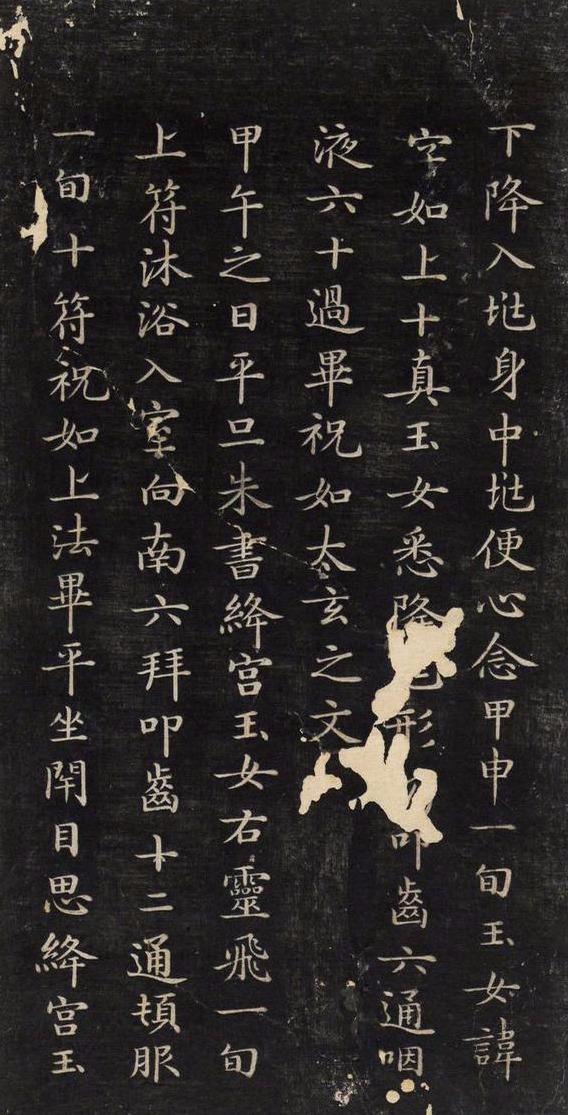 下降入垗身中垗便心念甲申一旬玉女諱
字如上十真玉女悉降形叩齒六通咽
液六十過畢祝如太玄之文
甲午之日平旦朱書絳宫玉女右靈飛一旬
上符沐浴入室向南六拜叩齒十二通頓服
一旬十符祝如上法畢平坐閇目思絳宫玉